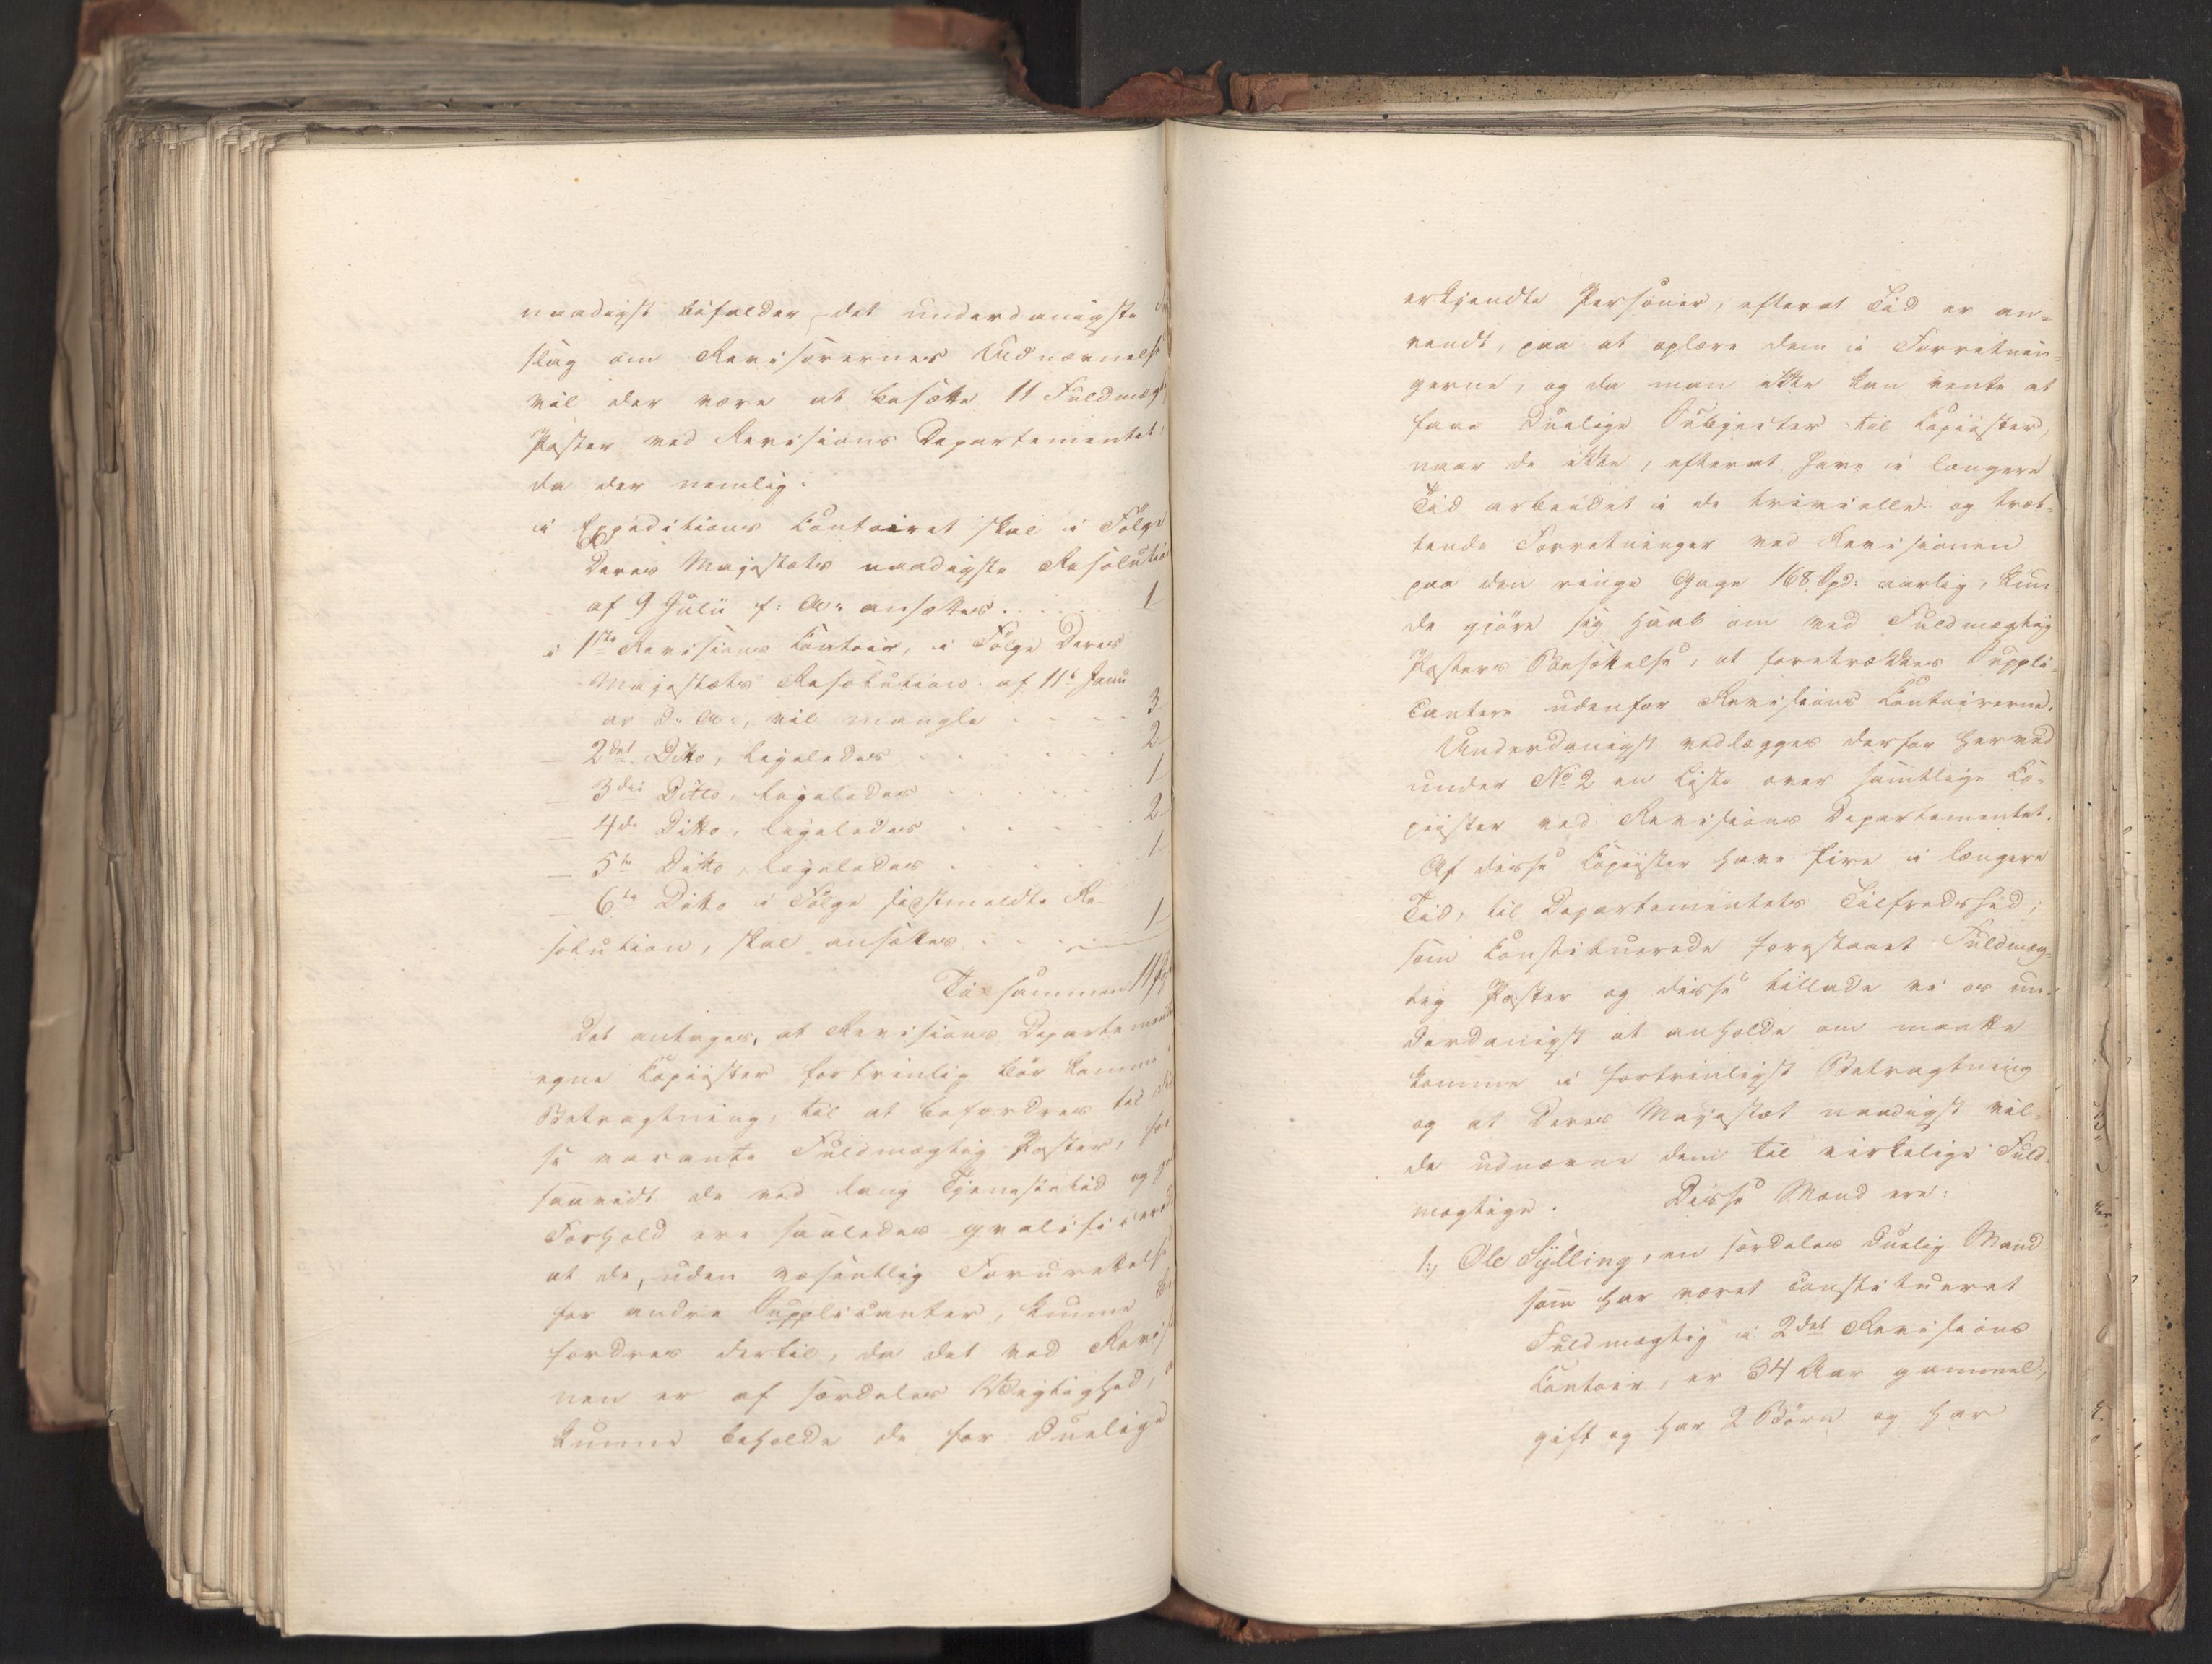 naadigst bifalder det underdanigste
slag om Revisorernes Udnævnelse
vil der være at besætte 11 Fuldmægt
Poster ved Revisions Departementet,
da der nemlig:
i Expeditions Contoiret skal i Følge
Deres Majestæts naadigste Resolution
af 9 Julii f: A: ansættes . . . . . 1
i 1ste Revisions Contoir, i Følge Deres
Majestæts Resolution af 11te Janu
ar d: A:, vil mangle . . . . 3
— 2det Ditto, ligeledes . . . . . . 2
— 3die Ditto, ligeledes . . . . . . 1
— 4de Ditto, ligeledes . . . . . . 2
— 5te Ditto, ligeledes . . . . . . 1
— 6te Ditto i Følge sidstmeldte Re-
solution, skal ansættes . . . . . 1
Tilsammen 11
Det antages, at Revisions Departementets
egne Copiister fortrinlig bör komme i
Betragtning, til at befordres til dis
se vacante Fuldmægtig Poster, for
saavidt de ved lang Tjenestetid og
Forhold ere saaledes qvalificerede
at de, uden væsentlig Forurettelse
for andre Supplicanter, kunne be
fordres dertil, da det ved Revisio
nen er af særdeles Vigtighed, at
kunne beholde de for duelige
erkjendte Personer, efterat Tid er an-
vendt, paa at oplære dem i Forretnin-
gerne, og da man ikke kan vente at
faae duelige Subjecter til Copiister,
naar de ikke, efterat have i længere
Tid arbeidet i de trivielle og træt-
tende Forretninger ved Revisionen
paa den ringe Gage 168 Spd: aarlig, kun
de gjöre sig Haab om ved Fuldmægtig
Posters Besættelse, at foretrækkes Suppli-
canter udenfor Revisions Contoirerne.
Underdanigst vedlægges derfor herved
under No 2 en Liste over samtlige Co-
piister ved Revisions Departementet.
Af disse Copiister have fire i længere
Tid, til Departementets Tilfredshed,
som Constituerede forestaaet Fuldmæg-
tig Poster og disse tillade vi os un-
derdanigst at anholde om maatte
komme i fortrinligst Betragtning
og at Deres Majestæt naadigst vil-
de udnævne dem til virkelige Fuld-
mægtige. Disse Mænd ere:
1:, Ole Sylling, en særdeles duelig Mand
som har været constitueret
Fuldmægtig i 2det Revisions
Contoir, er 34 Aar gammel,
gift og har 2 Börn og har